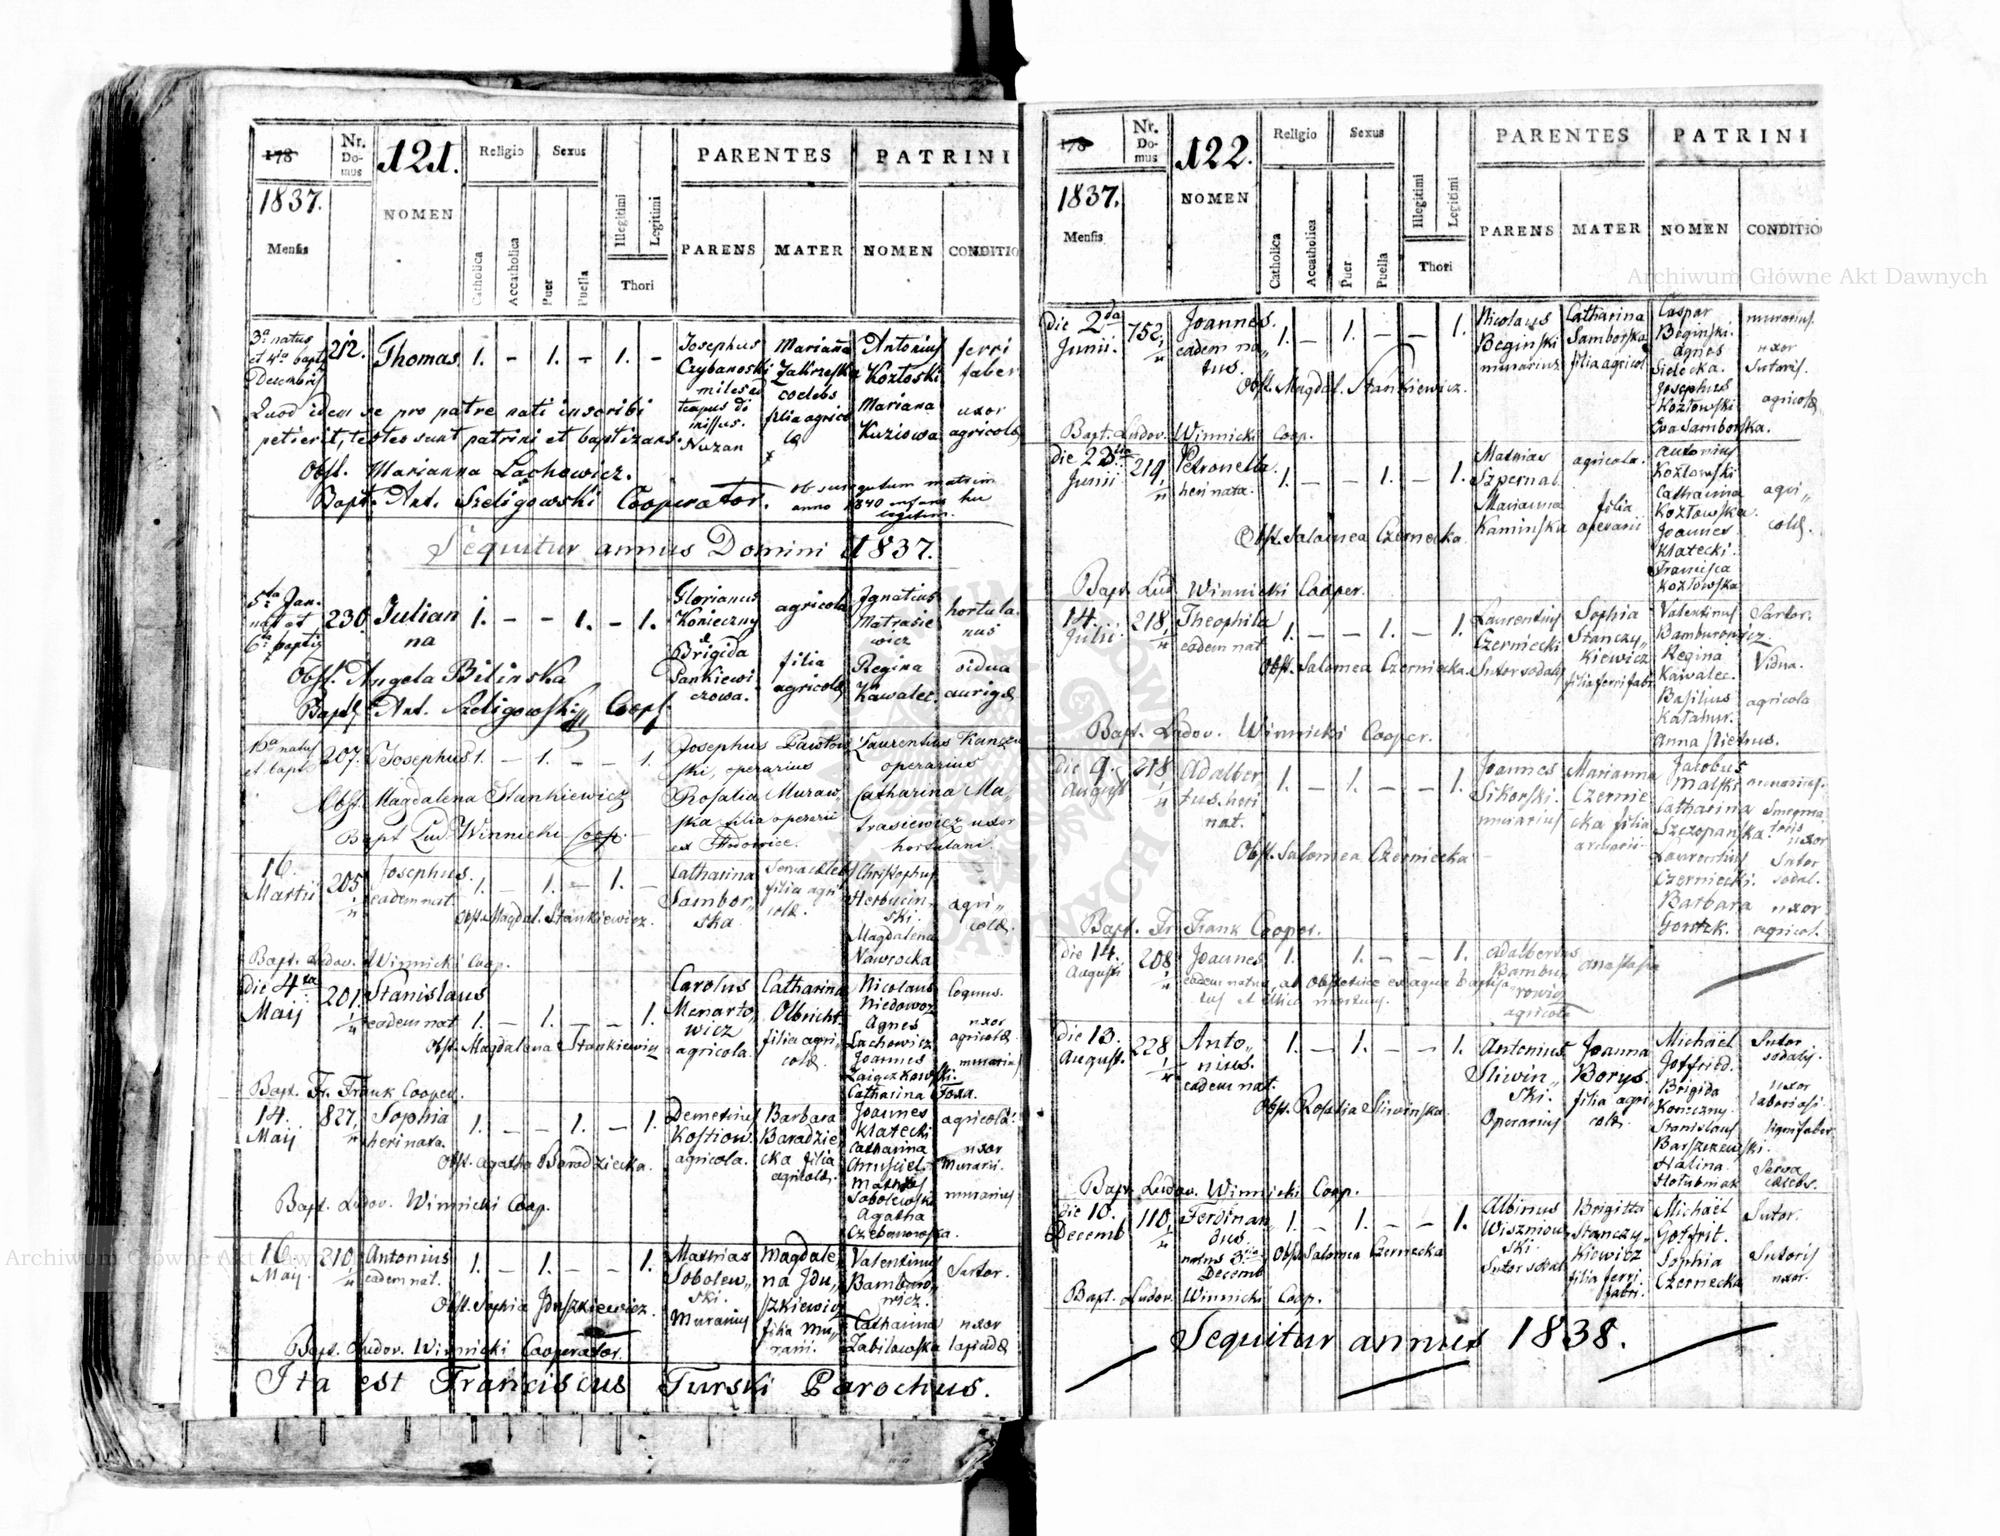 178
Nr. Domus
121.
Religio
Sexus
PARENTES
PATRINI
1837.
Mensis
NOMEN
Catholica
Accatholica
Puer
Puella
Illegitimi
Legitimi
Thori
PARENS
MATER
NOMEN
CONDITIO
3a natus et 4a bapt. Decembris
212.
Thomas
1. - 1. - 1. -
Josephus Czybanoski miles ad tempus dimissus.
Marianna Zakrzeska coelebs filia agricolæ
Antonius Kozłoski
ferri faber
Mariana Kuziowa
uxor agricolæ
Quod idem se pro patre nati inscribi
petierit, testes sunt patrini et baptizans.
Obst. Marianna Lachowicz.
Bapt. Ant. Szeligowski Cooperator.
Sequitur annus Domini 1837.
5ta Jan. nat. et 6ta baptiz
230
Julianna
1. - - 1. - 1.
Florianus Konieczny
agricola
& Brigida Pankiewiczowa.
filia agricolæ
Ignatius Matrasiewicz
hortulanus
Regina Kawalec.
vidua aurigæ
Obst. Angela Bilinska
Bapt. Ant. Szeligowski Coop.
207.
Josephus
1. - 1. - - 1.
Josephus Pawłowski, operarius
Rosalia Murawska filia operarii
Laurentius
operarius
Catharina Matrasiewicz uxor hortulani.
Obst. Magdalena Stankiewicz
Bapt Lud. Winnicki Coop.
16. Martii
205
Josephus. eadem nat.
1. - 1. - 1. -
Catharina Samborska
filia agricolæ.
Christophus
Magdalena Nawrocka
agricolæ.
Obst. Magdal. Stankiewicz.
Bapt. Ludov. Winnicki Coop.
die 4ta Maij
201
Stanislaus eadem nat
1. - 1. - - 1.
Carolus Menartowicz agricola.
Catharina Olbricht. filia agricolæ.
Nicolaus Niedowoz
coquus.
Agnes Lachowicz
uxor agricolæ
Joannes Zaiączkowski.
murarius
Catharina Foxa.
Obst. Magdalena Stankiewicz
Bapt. Fr. Frank Cooper.
14. Maij
827
Sophia heri nata.
1. - - 1. - 1.
Demetrius Kostiow agricola.
Barbara Baradziecka filia agricolæ.
Joannes Klatecki
agricola.
Catharina Chruściel.
uxor Murarii.
Mathias Sobolewski
murarius
Agatha Czebanowska.
Obst. Agatha Baradziecka.
Bapt. Ludov. Winnicki Coop.
16. Maij.
210
Antonius eadem nat.
1. - 1. - - 1.
Mathias Sobolewski. Murarius
Magdalena Iduszkiewicz filia Murarii.
Valentinus Bamburowicz.
Sartor.
Catharina Zabilawska
uxor lapicidæ
Obst. Sophia Iduszkiewicz.
Bapt. Ludov. Winnicki Cooperator.
Ita est Franciscus Turski Parochus.
178
Nr. Domus
122.
Religio
Sexus
PARENTES
PATRINI
1837.
Mensis
NOMEN
Catholica
Accatholica
Puer
Puella
Illegitimi
Legitimi
Thori
PARENS
MATER
NOMEN
CONDITIO
die 2da Junii.
752
Joannes. eadem natus.
1. - 1. - - 1.
Nicolaus Beginski murarius
Catharina Samborska filia agricol.
Caspar Beginski.
murarius.
Agnes Sielecka.
uxor Sutoris.
Josephus Kozłowski
agricolæ
Eva Samborska.
Obst. Magdal. Stankiewicz.
Bapt. Ludov. Winnicki Coop.
Junii
214
Petronella. heri nata.
1. - - 1. - 1.
Mathias Szpernal.
agricola.
Marianna Kaminska
filia operarii
Antonius Kozłowski
Catharina Kozłowska
Joannes Klatecki.
Francisca Kozłowska
agricolæ.
Obst. Salomea Czernecka.
Bapt. Lud. Winnicki Cooper.
14. Julii
218
Theophila eadem nat
1. - - 1. - 1.
Laurentius Czerniecki Sutor sodalis
Sophia Stanczykiewicz filia ferri fabr.
Valentinus Bamburowicz.
Sartor.
Regina Kawalec.
Vidua.
Basilius Katahur.
agricola
Anna
Obst. Salomea Czerniecka.
Bapt. Ludov. Winnicki Cooper.
die 9. August
218
Adalbertus heri nat.
1. - 1. - - 1.
Joannes Sikorski. murarius
Marianna Czerniecka filia
Jacobus Malski
Catharina Szczopańska.
uxor
Laurentius Czerniecki.
Sutor sodal.
Barbara Gorszk.
uxor agricol.
Obst. Salomea Czerniecka
Bapt. Fr. Frank Cooper.
die 14. Augusti
208
Joannes
1. - 1. - - 1.
eadem natus, ab Obstetrice ex aqua
et illico mortuus.
Adalbertus Bamburowicz agricola
Anastasia
die 13. August.
228
Antonius. eadem nat.
1. - 1. - - 1.
Antonius Sliwinski. Operarius
Joanna Borys. filia agricolæ.
Michaël Gotfried.
Sutor sodalis.
Brigida Koniczny.
uxor
Stanislaus Barszczewski.
lignifaber
Halina Hołubniak
Serva cælebs.
Obst. Rosalia Sliwinska.
Bapt. Ludov. Winnicki Coop.
die 10. Decemb
110
Ferdinandus. natus 3tia Decemb
1. - 1. - - 1.
Albinus Wiszniowski. Sutor sodal
Brigitta Stanczykiewicz filia ferri fabri.
Michaël Gotfrit.
Sutor.
Sophia Czernecka
Sutoris uxor.
Obst. Salomea Czernecka
Bapt. Ludov. Winnicki Coop.
Sequitur annus 1838.
Archiwum Główne Akt Dawnych